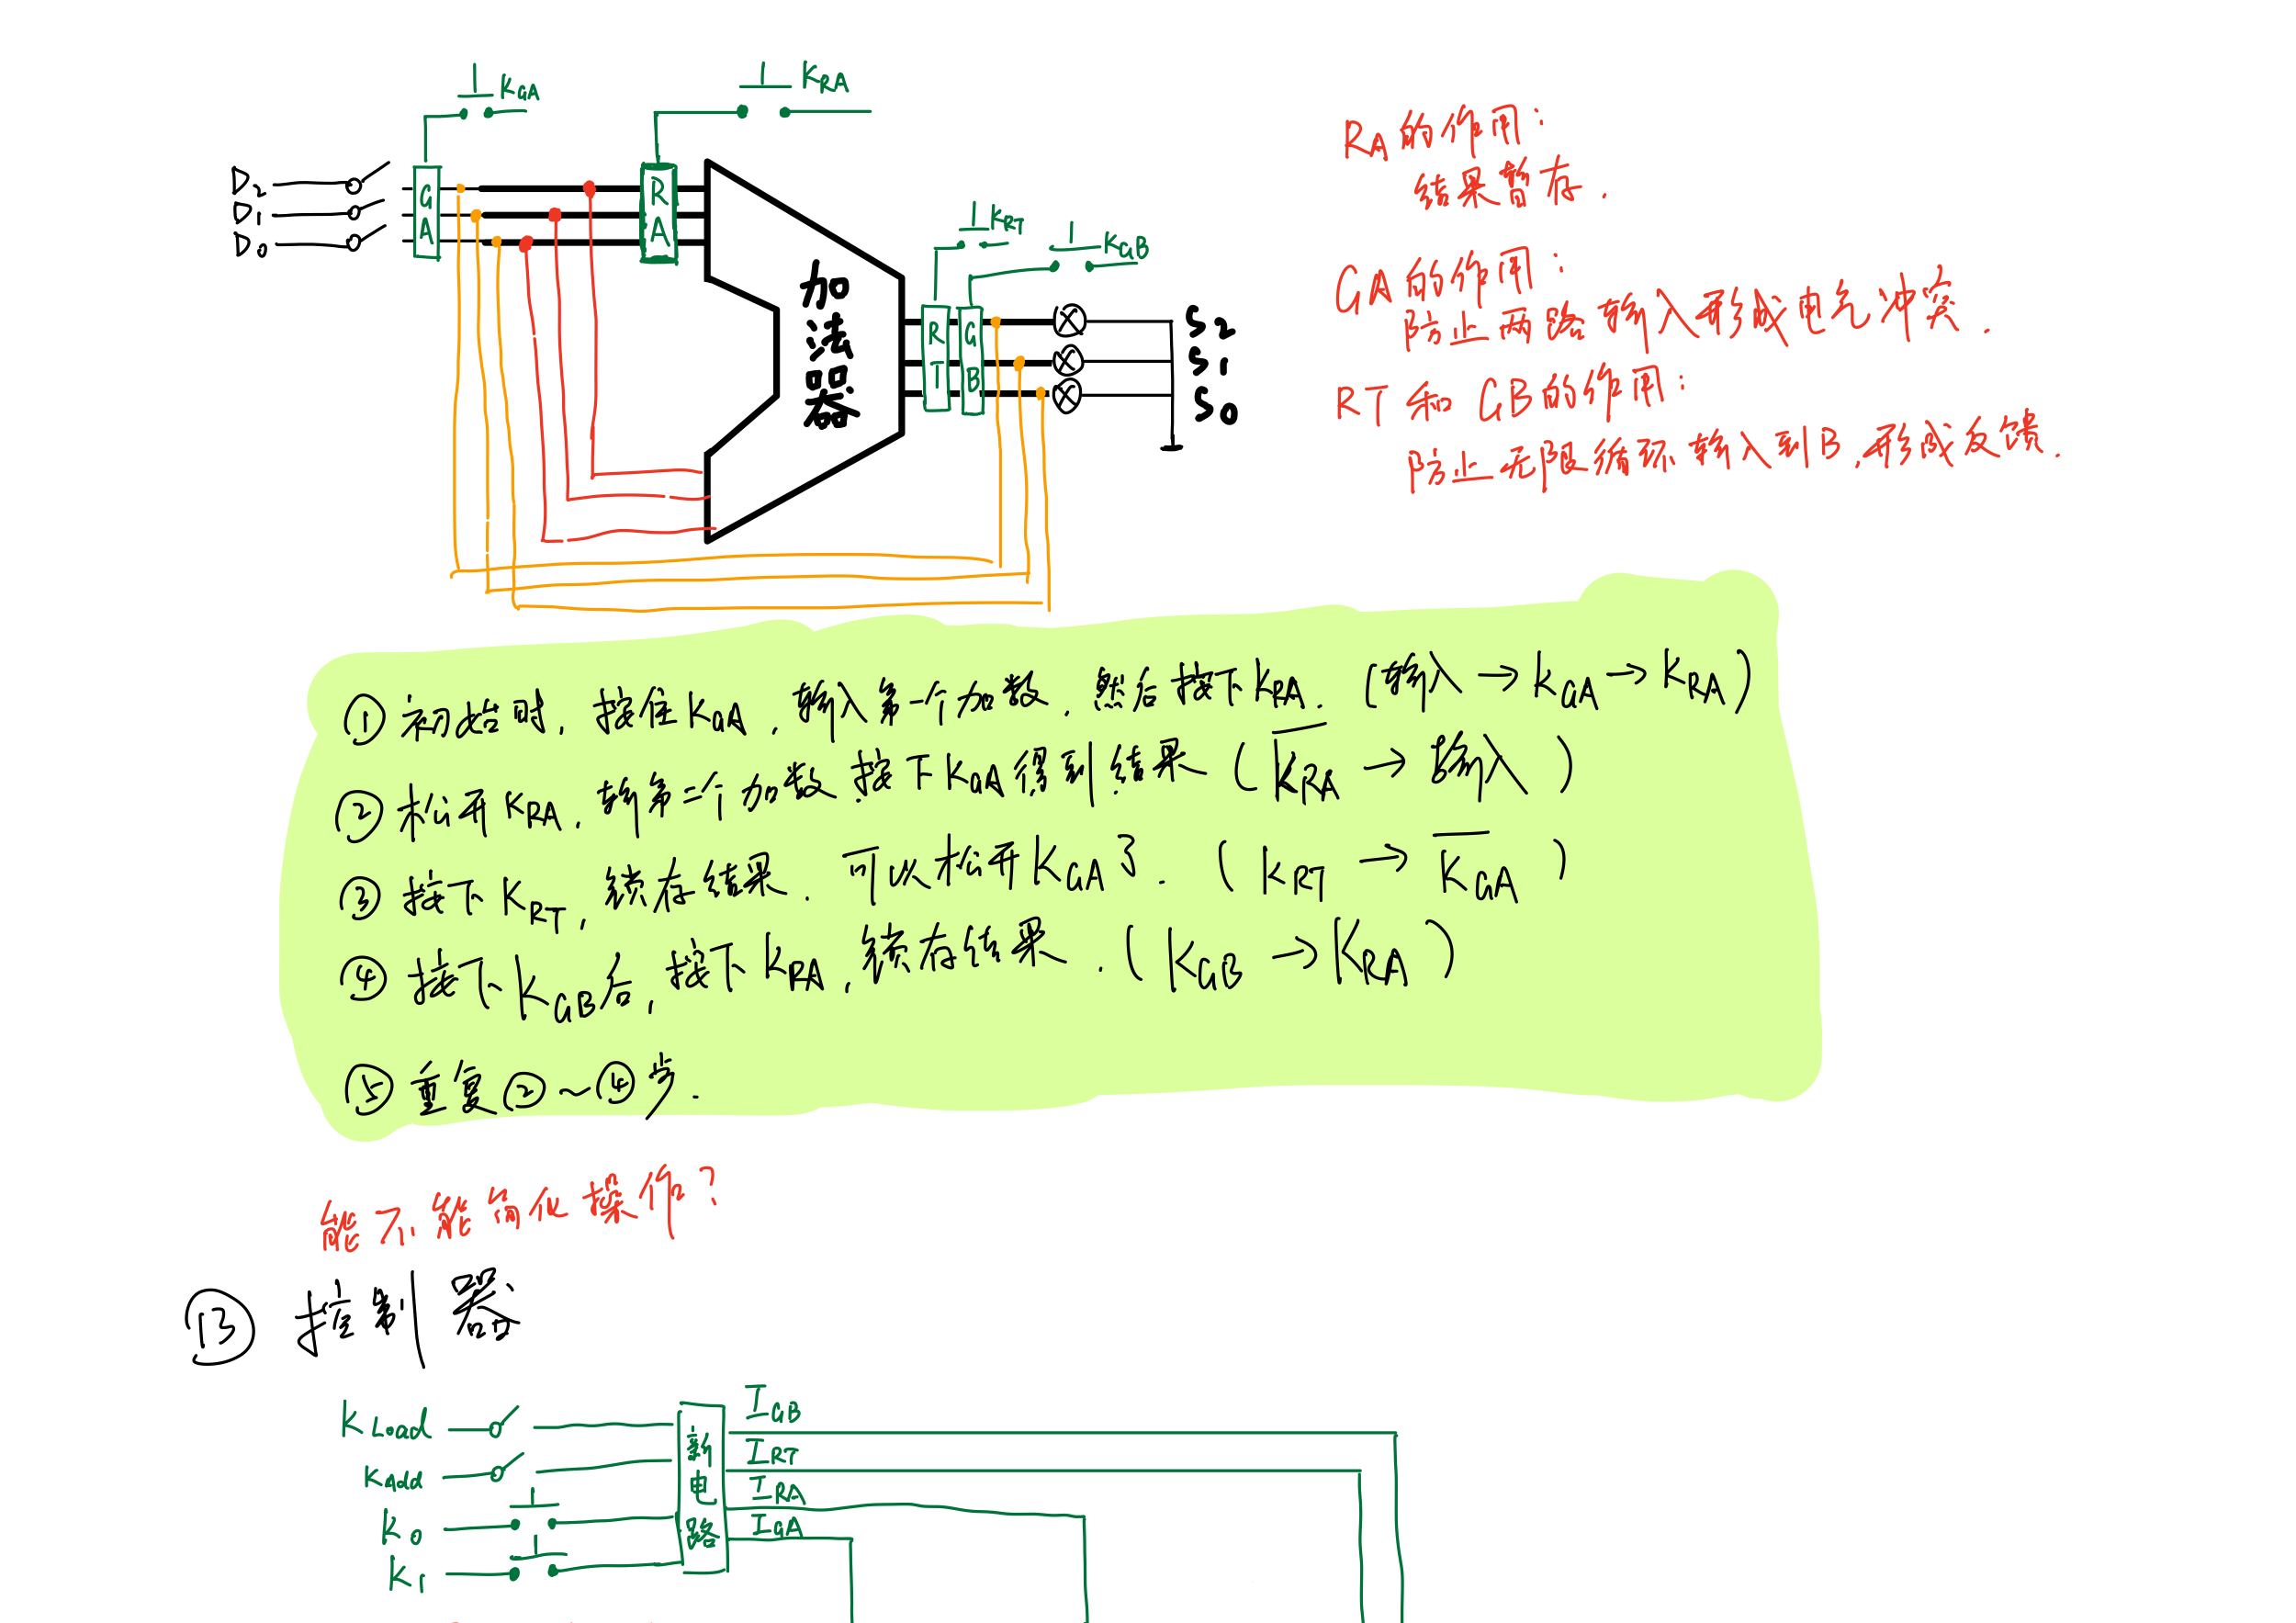 KGA
KRA
D2
D1
D0
GA
RA
加法器
KRT
KGB
RT
GB
S2
S1
S0
RA的作用:
结果暂存.
GA的作用:
防止两路输入形成电气冲突.
RT和GB的作用:
防止无限循环输入到B,形成反馈.
① 初始时,按住KGA,输入第一个加数,然后按下KRA. (输入→KGA→KRA)
② 松开KRA,输第二个加数.按下KGA得到结果 (K̅RA→输入)
③ 按下KRT,锁存结果.可以松开KGA了. (KRT→K̅GA)
④ 按下KGB后,按下KRA,锁存结果. (KGB→KRA)
⑤ 重复②~④步.
能不能简化操作?
⑬ 控制器
KLoad
KAdd
K0
K1
新电路
IGB
IRT
IRA
IGA